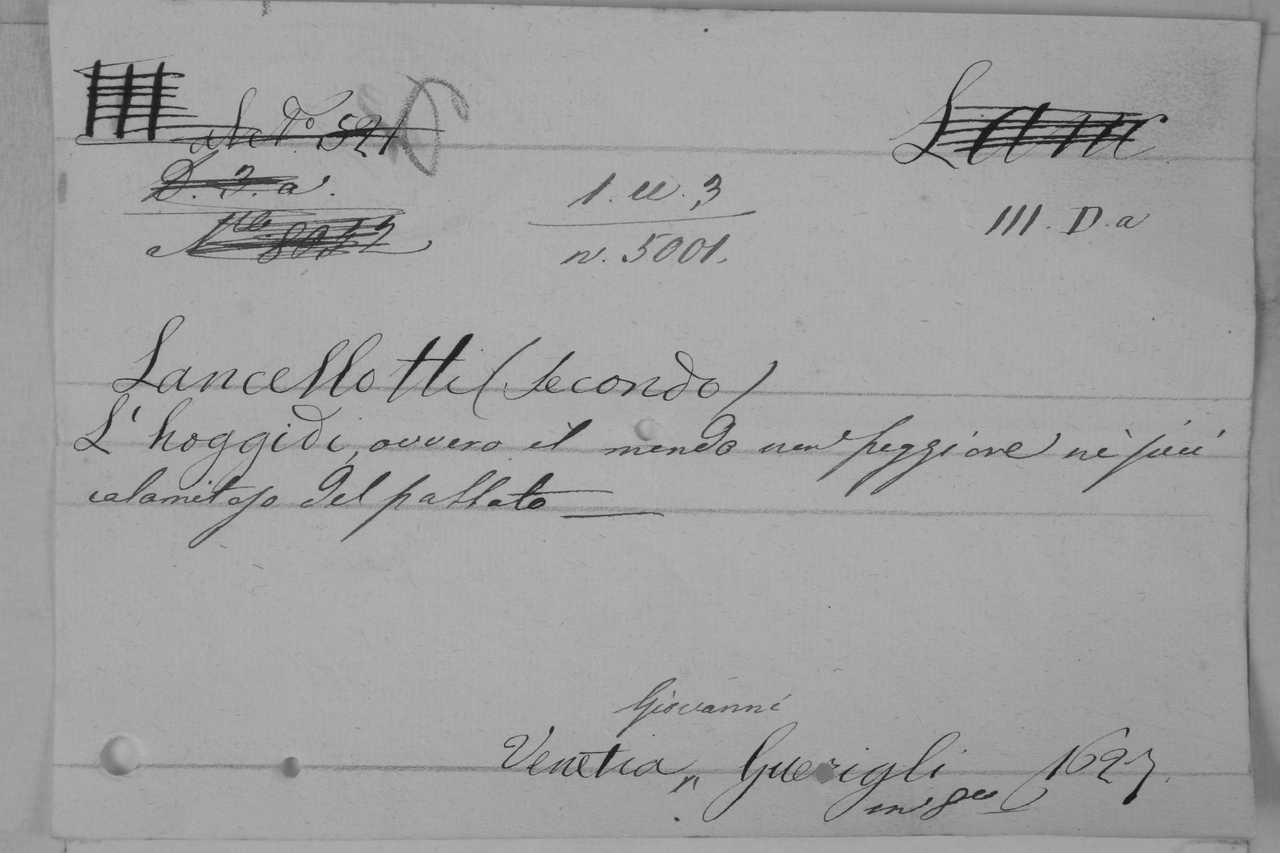 521
D. 3. a.
8052
1. cc. 3
n. 5001.
III. D. a
Lancellotti (Secondo)
L'hoggidi, ovvero il mondo non peggiore nè più
calamitoso del passato
Giovanni
Venetia, Guerigli 1627.
in 8vo